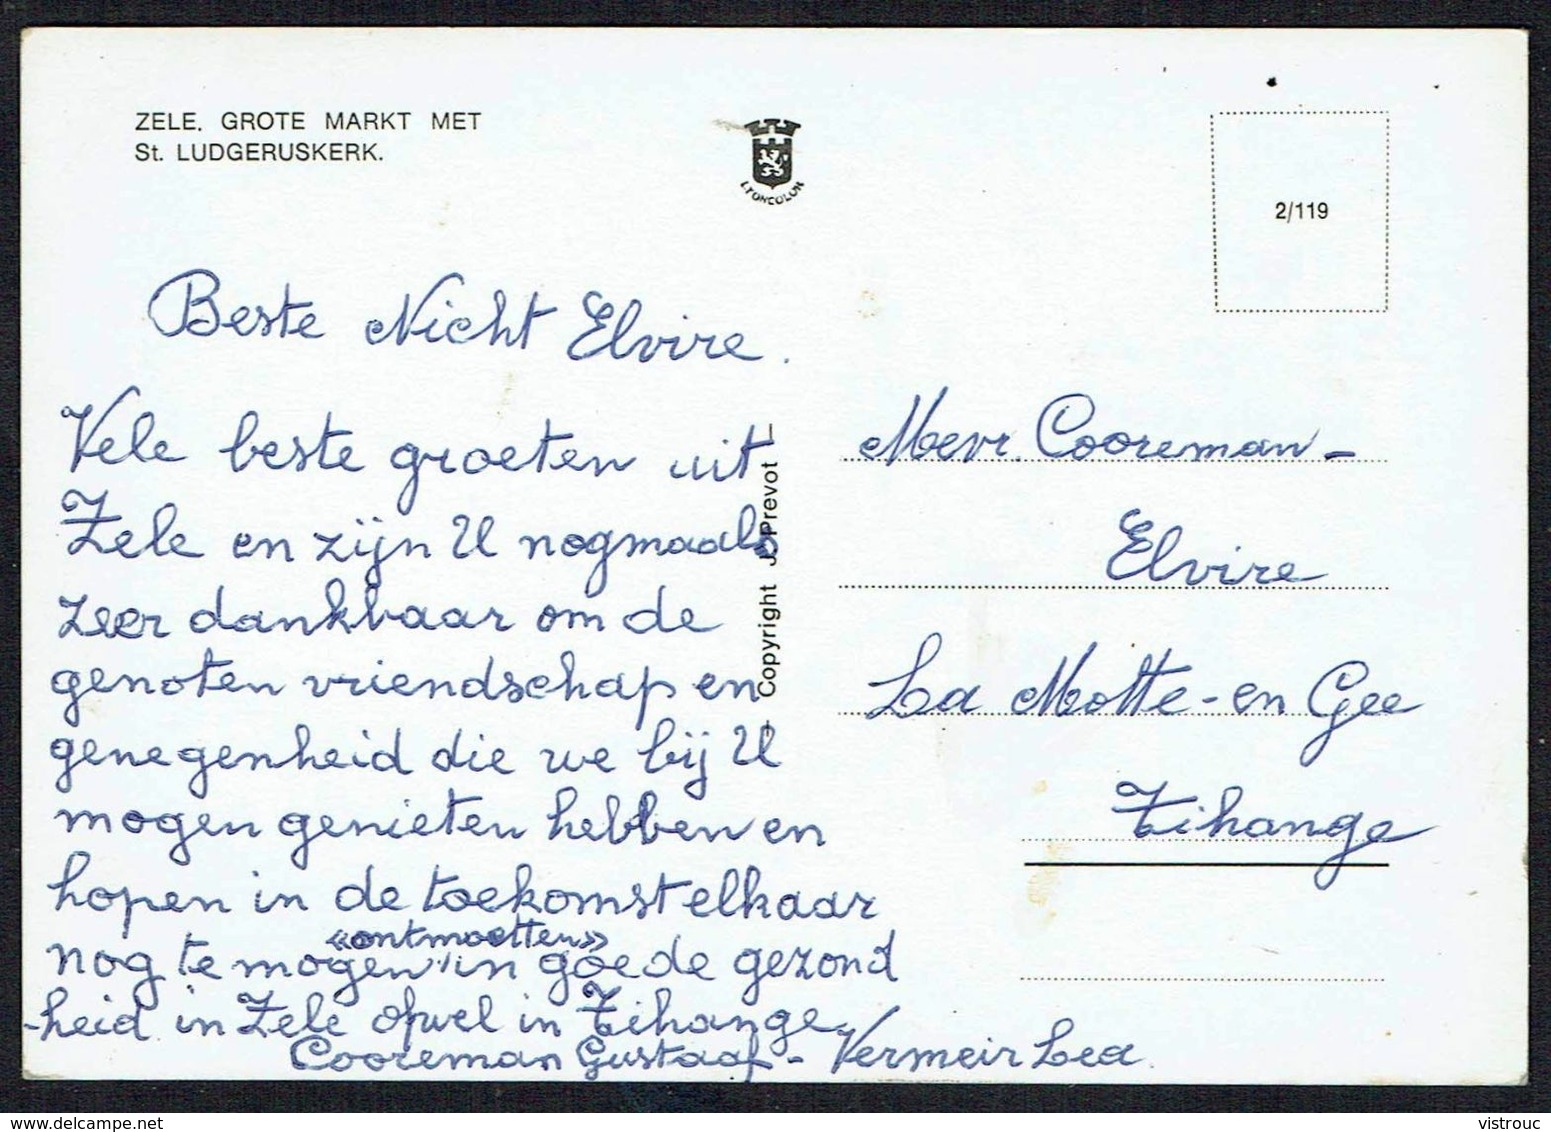 ZELE. GROTE MARKT MET
St. LUDGERUSKERK.
LYONCOLOR
2/119
Beste Nicht Elvire.
Vele beste groeten uit
Zele en zijn U nogmaals
zeer dankbaar om de
genoten vriendschap en
genegenheid die we bij U
mogen genieten hebben en
hopen in de toekomst elkaar
«ontmoetten»
nog te mogen in goede gezond
-heid in Zele ofwel in Tihange.
Cooreman Gustaaf - Vermeir Lea
— Copyright J. Prevot —
Mevr. Cooreman-
Elvire
La Motte-en Gee
Tihange
www.delcampe.net
vistrouc